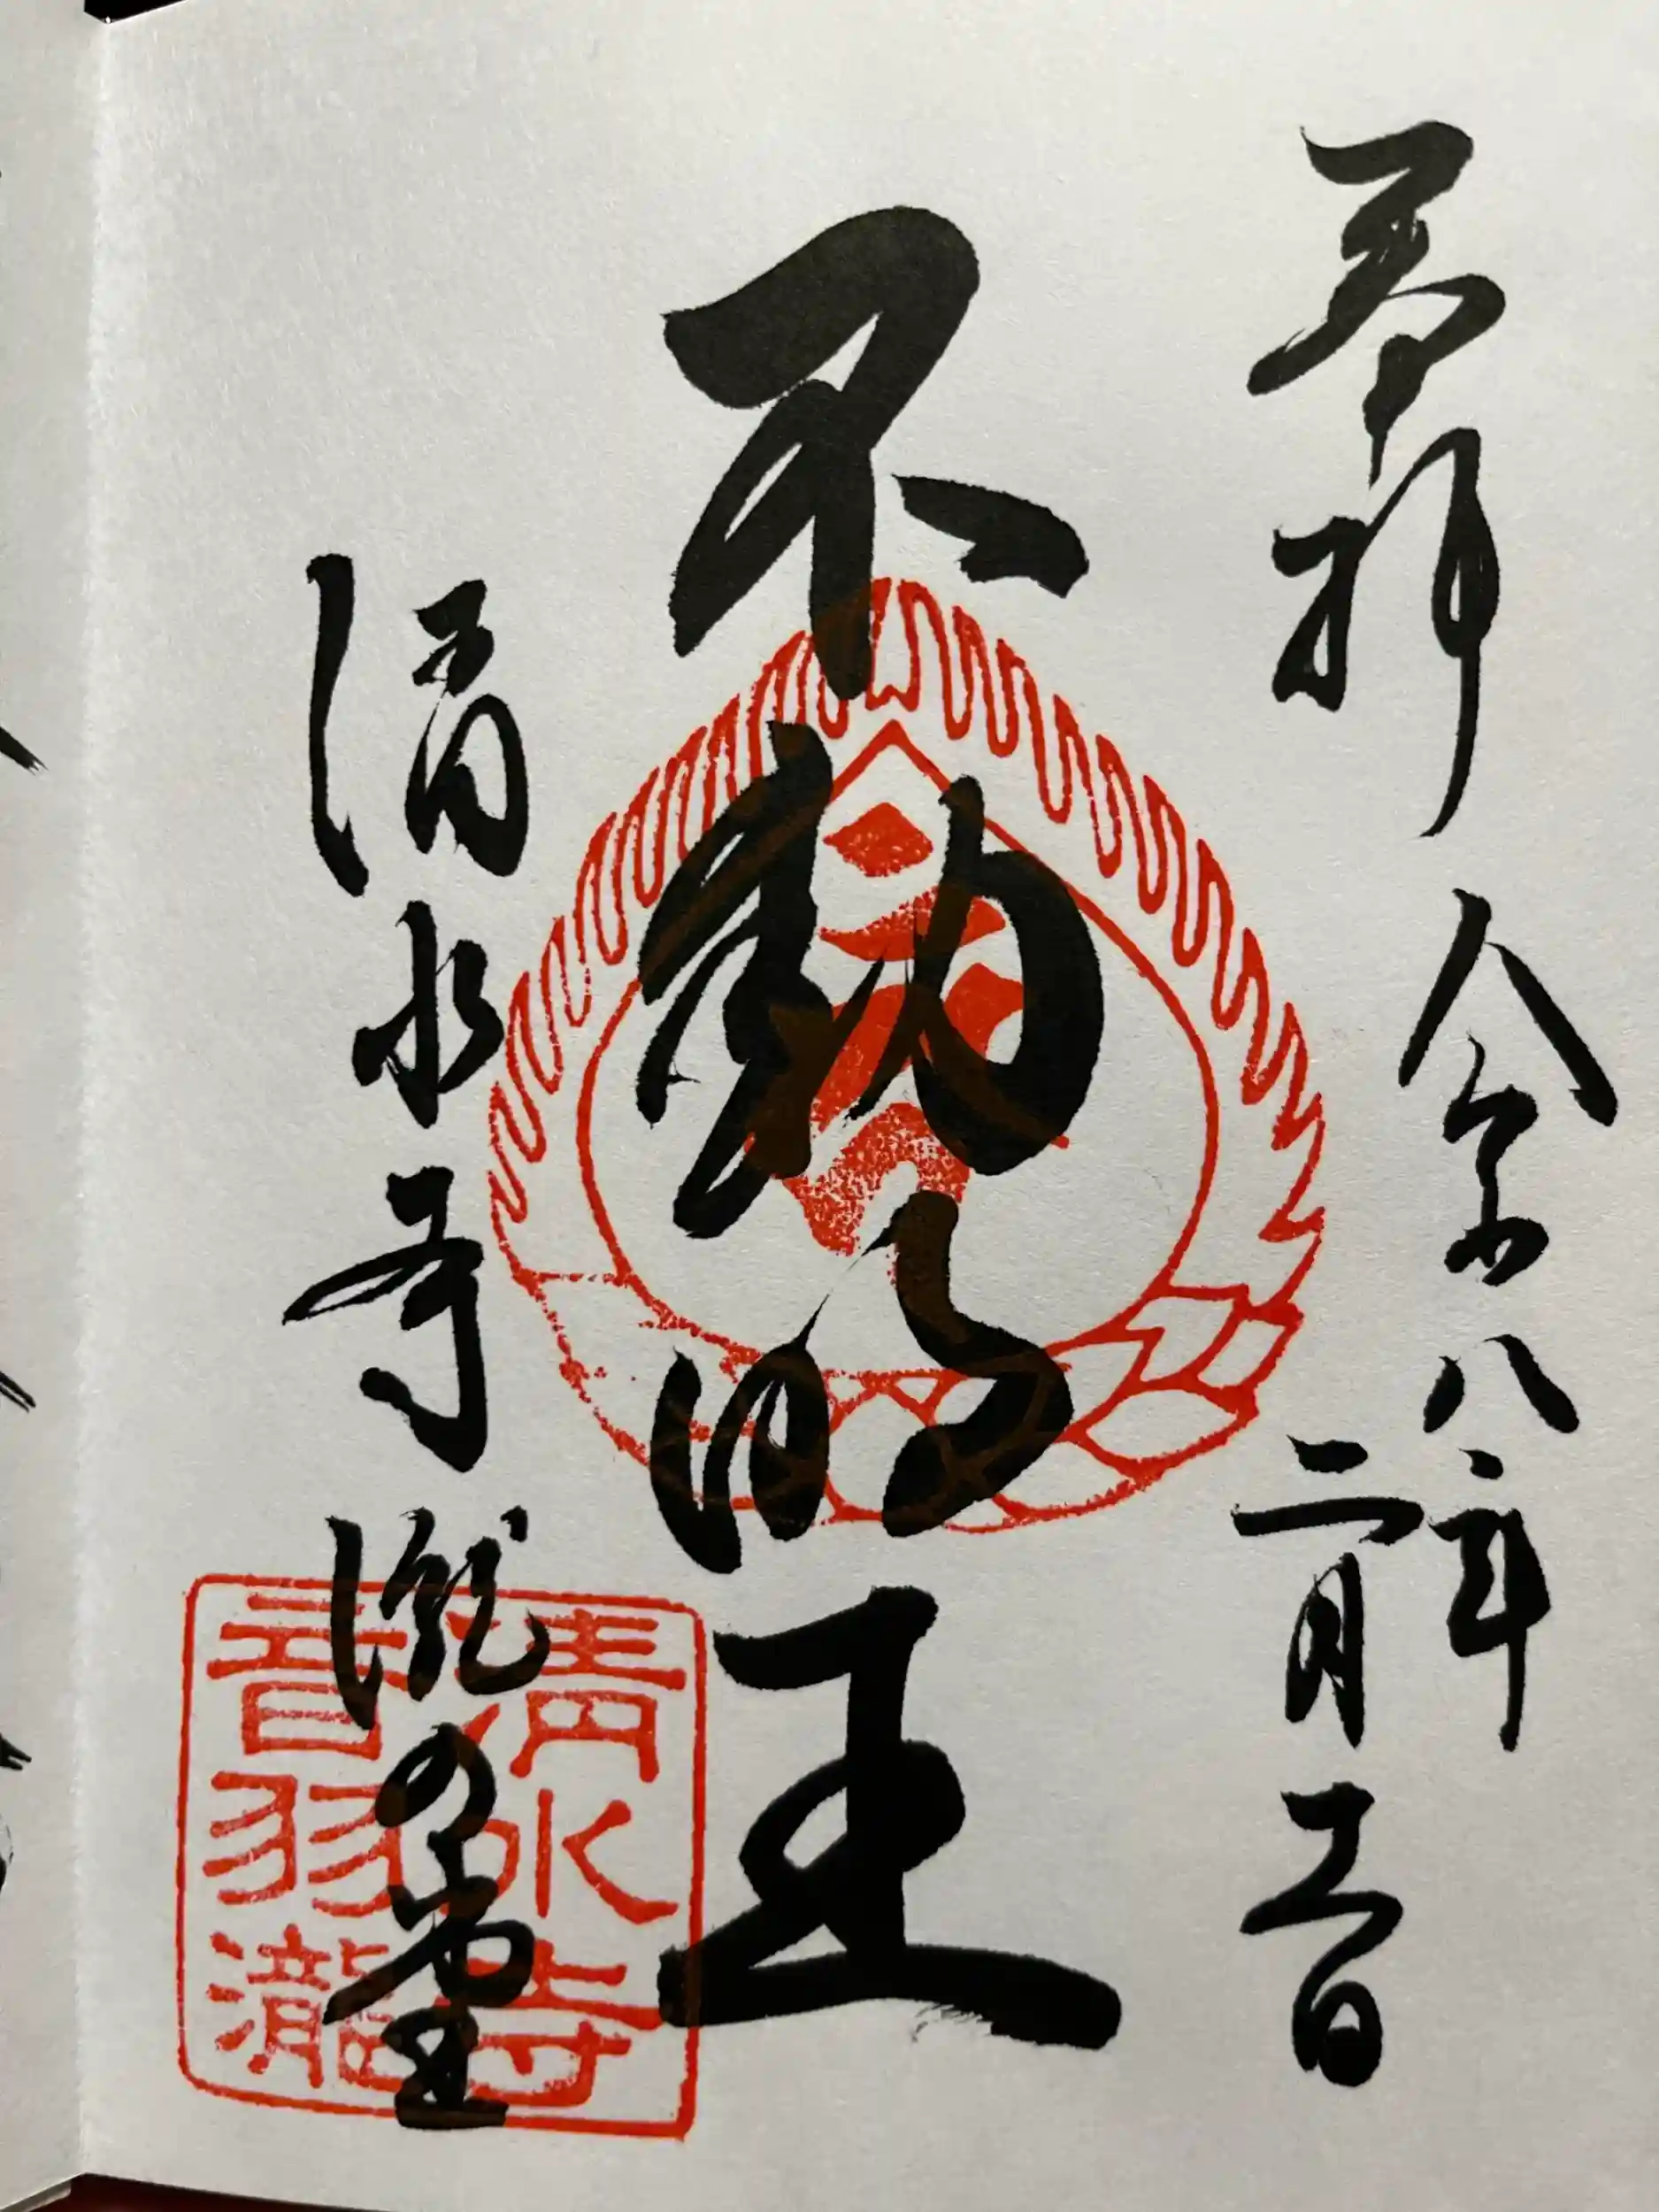 奉拝
令和八年
二月五日
不動明王
清水寺 瀧の堂
清水寺
音羽瀧